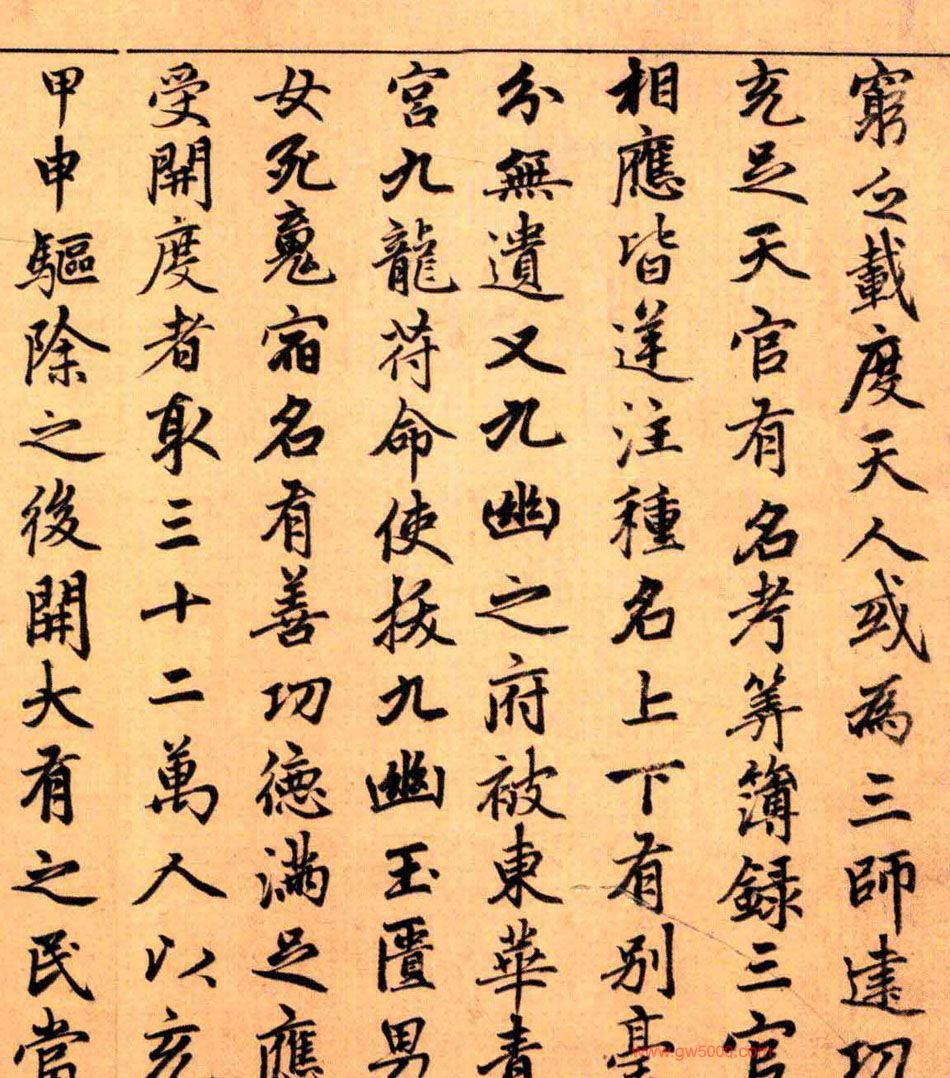 窮之載度天人或為三師建功
充足天官有名考筭簿録三官
相應皆逆注種名上下有別毫
分無遺又九幽之府被東華青
宮九龍符命使拔九幽玉匱男
女死魂宿名有善功德滿足應
受開度者取三十二萬人以充
甲申驅除之後開大有之民當